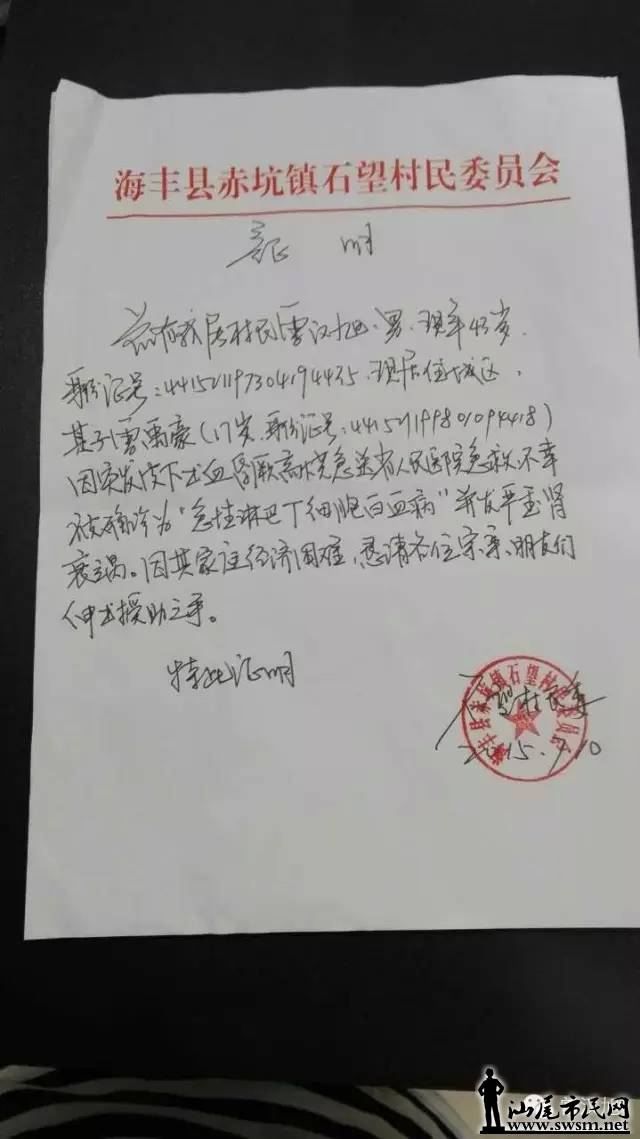 海丰县赤坑镇石望村民委员会
证 明
兹有我居村民雷汉旭、男、现年43岁、
身份证号:441521197304194435、现居住城区、
其子雷禹豪(17岁、身份证号:441521199801094418)
因突发皮下出血昏厥高烧急送省人民医院急救、不幸
被确诊为“急性淋巴丁细胞白血病”并发严重肾
衰竭。因其家庭经济困难,恳请各位宗亲、朋友们
伸出援助之手。
特此证明
石望村民委
2015.9.10
海丰县赤坑镇石望村民委员会
汕尾市民网
www.swsm.net